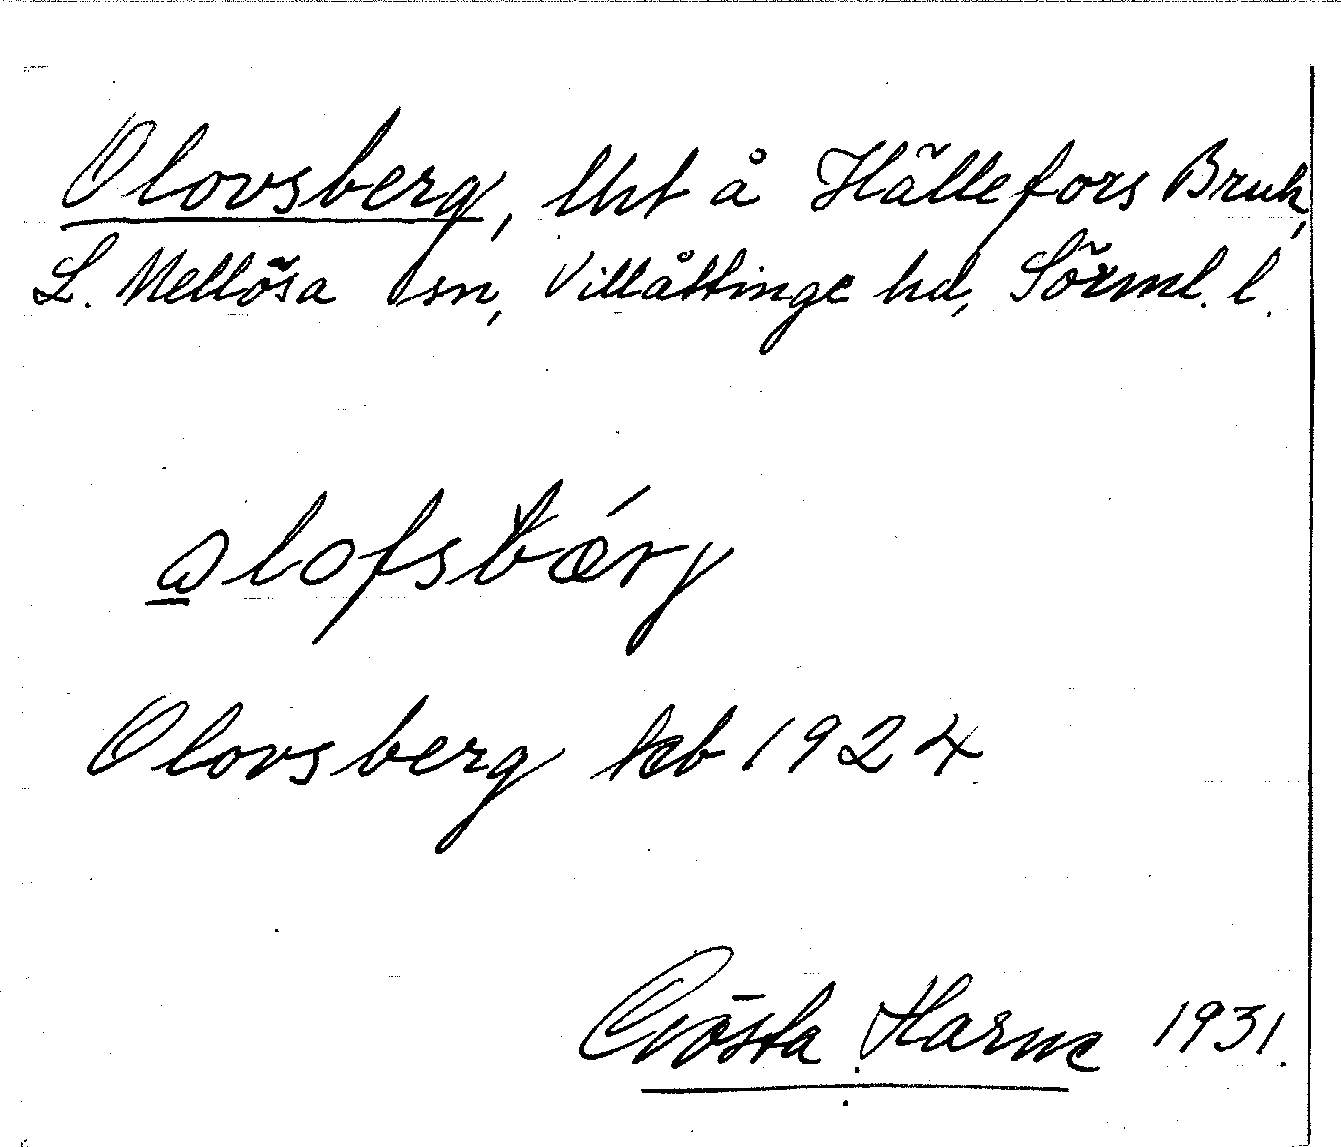 Olovsberg, lht å Hällefors Bruk,
L. Mellösa sn, Villåttinge hd, Sörml. l.
olofsbærj
Olovsberg kb 1924
Gösta Harne 1931.